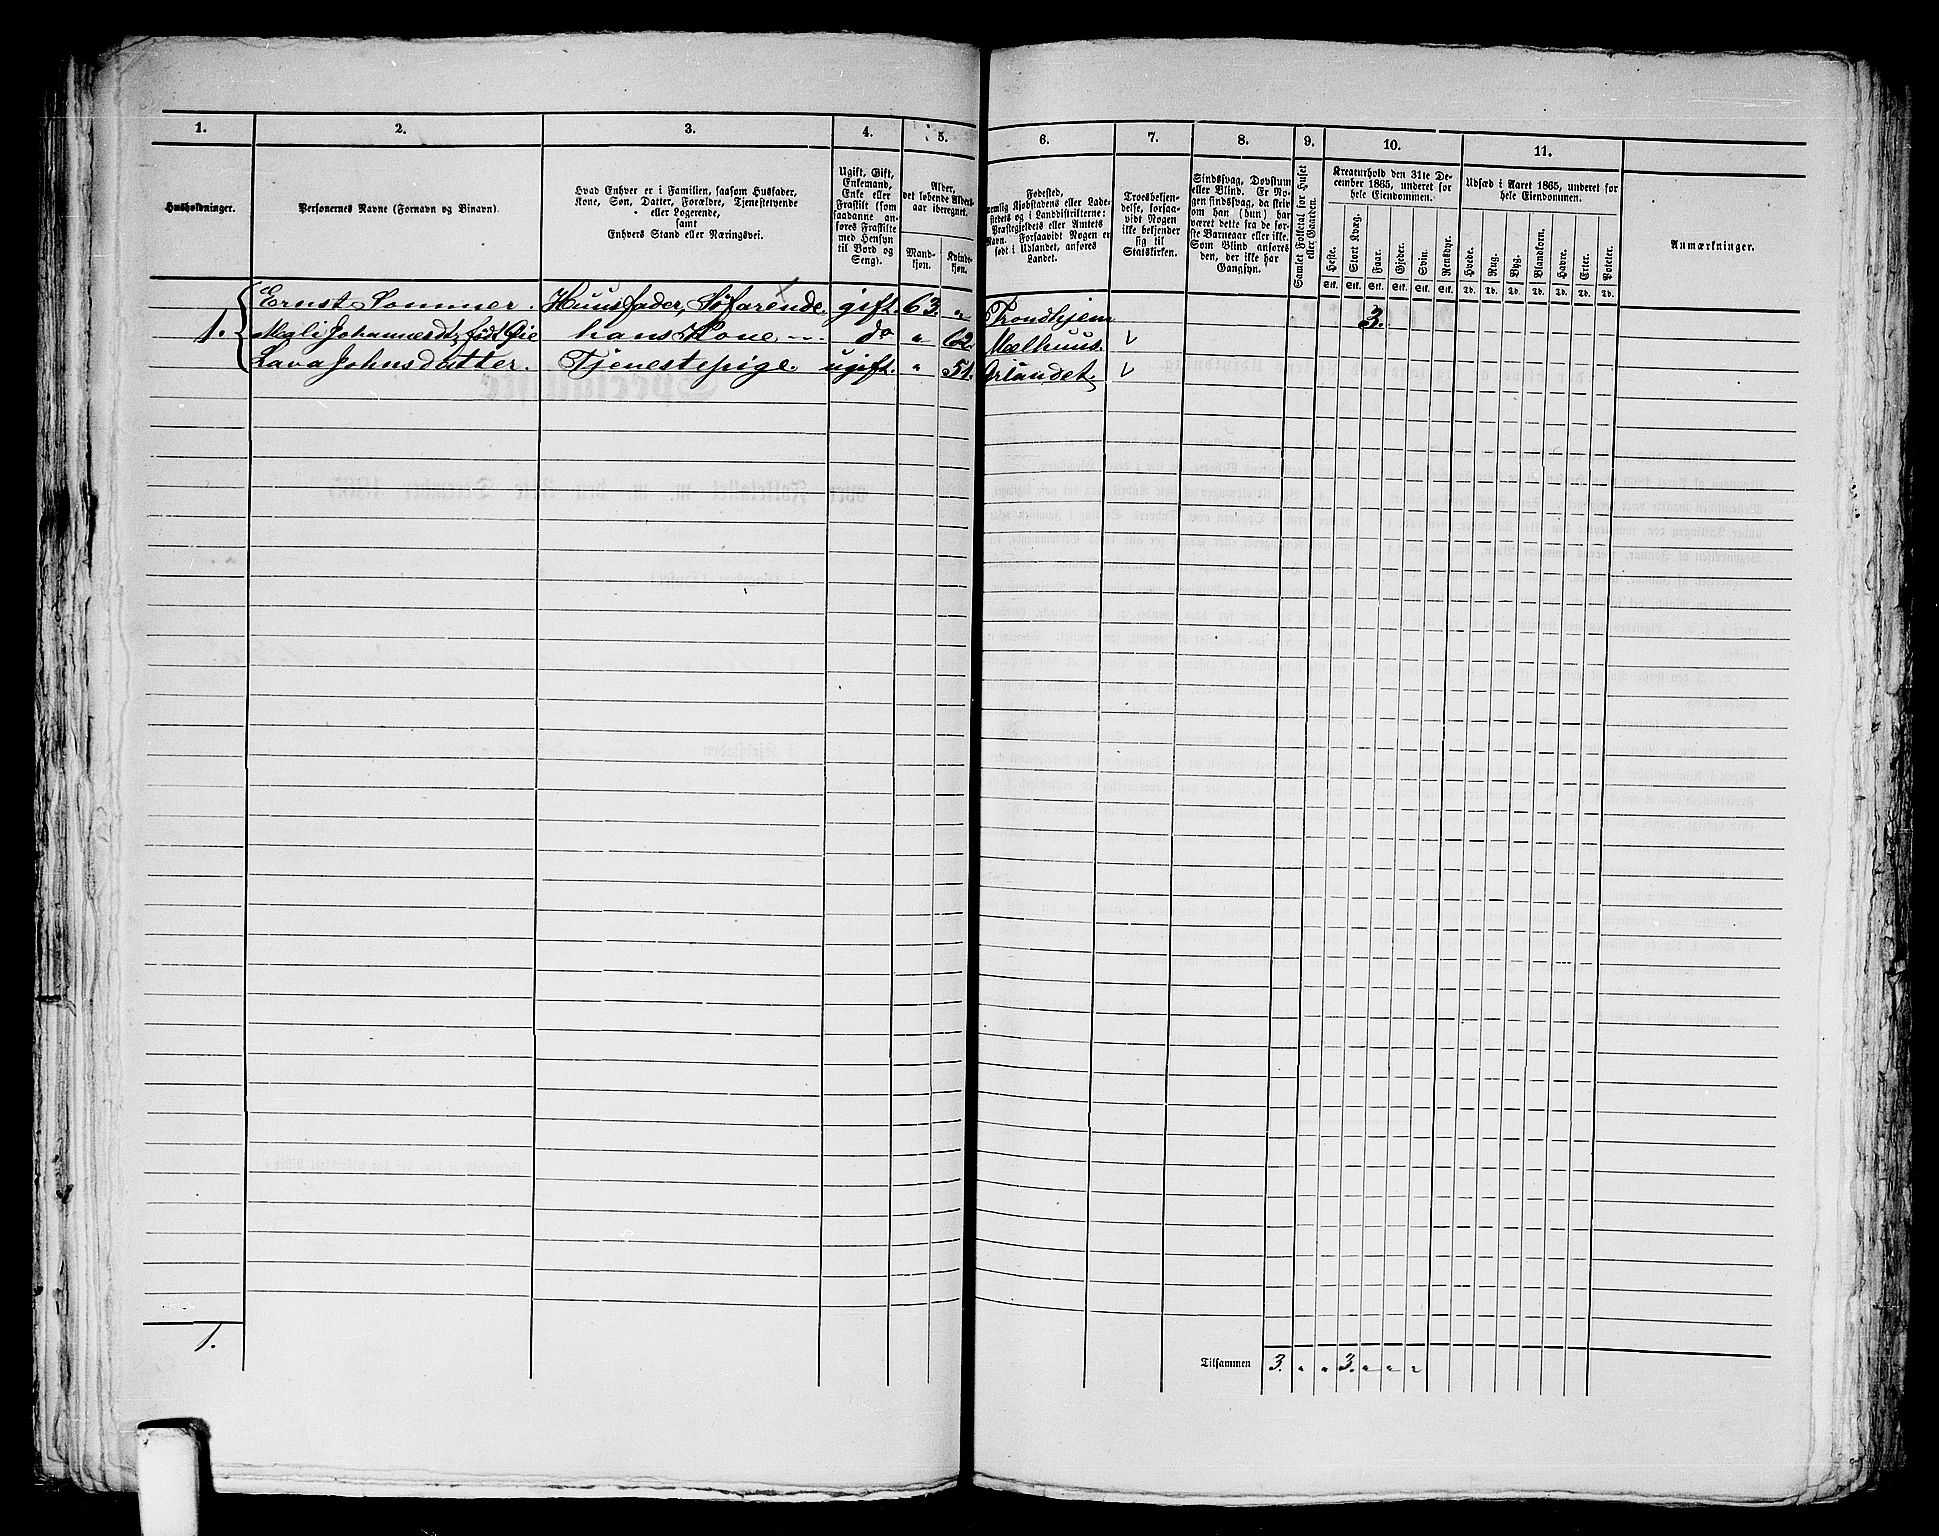 1. 2. 3. 4. 5. 6. 7. 8. 9. 10. 11.
Husholdninger.
Personernes Navne (Fornavn og Binavn).
Hvad Enhver er i Familien, saasom Husfader,
Kone, Søn, Datter, Forældre, Tjenestetyende
eller Logerende,
samt
Enhvers Stand eller Næringsvei.
Ugift, Gift,
Enkemand,
Enke eller
Fraskilt (som
saadanne an-
føres Fraskilte
med Hensyn
til Bord og
Seng).
Alder,
det løbende Alders-
aar iberegnet.
Mand-
kjøn.
Kvinde-
kjøn.
Fødested,
nemlig Kjøbstadens eller Lade-
stedets og i Landdistrikterne:
Præstegjeldets eller Amtets
Navn. Forsaavidt Nogen er
født i Udlandet, anføres
Landet.
Troesbekjen-
delse, forsaa-
vidt Nogen
ikke bekjender
sig til
Statskirken.
Sindssvag, Døvstum
eller Blind. Er No-
gen sindssvag, da skriv
om han (hun) har
været dette fra de før-
ste Barneaar eller ikke.
Som Blind anføres
den, der ikke har
Gangsyn.
Samlet Folketal for Huset
eller Gaarden.
Kreaturhold den 31te De-
cembre 1865, underet for
hele Eiendommen.
Heste. Stort Kvæg. Faar. Gjeder. Svin. Rensdyr.
Stk. Stk. Stk. Stk. Stk. Stk.
Udsæd i Aaret 1865, underet for
hele Eiendommen.
Hvede. Rug. Byg. Blandkorn. Havre. Erter. Poteter.
Td. Td. Td. Td. Td. Td. Td.
Anmærkninger.
Ernst Sommer. Huusfader, Søfarende. gift. 63. " Trondhjem 3.
1. Magli Johannesdt, født Øie hans Kone do " 62. Mælhuus.
Lava Johnsdatter. Tjenestepige. ugift. " 51. Ørlandet
1.
Tilsammen 3. " " 3. " " "